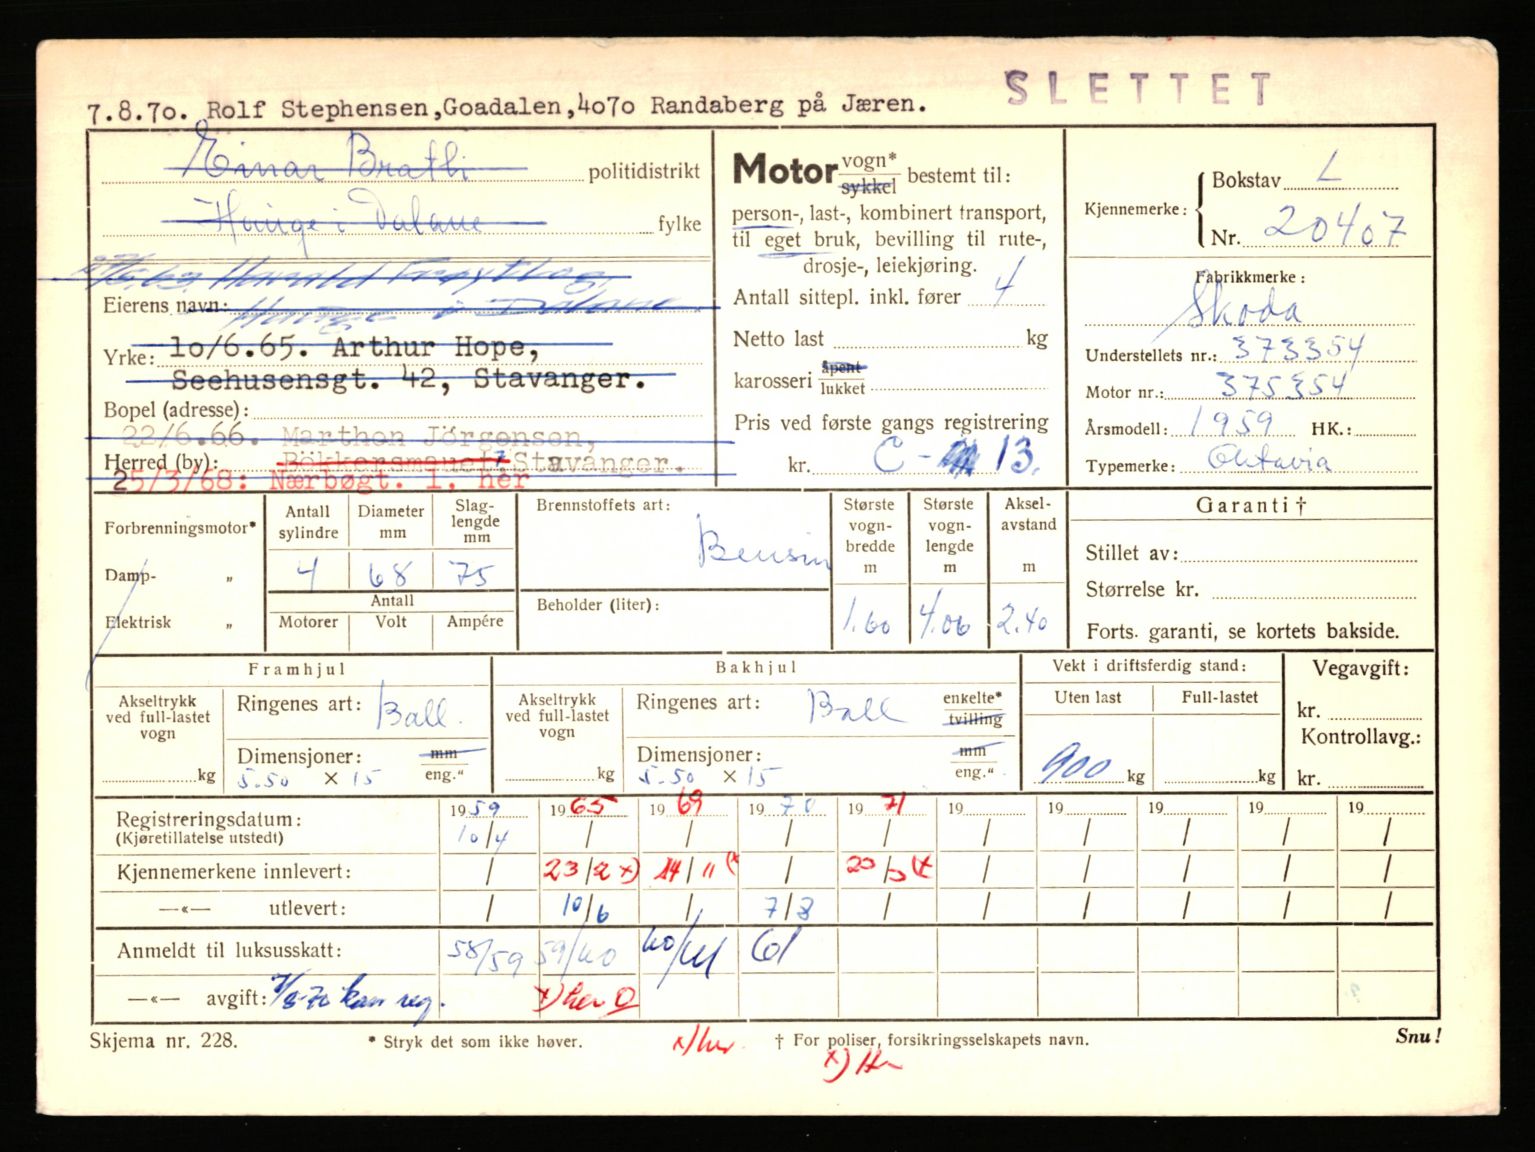 SLETTET
7.8.70. Rolf Stephensen,Goadalen,4070 Randaberg på Jæren.
Einar Bratli politidistrikt
Hauge i Dalane fylke
Harald
Eierens navn: Hauge i Dalane
Yrke: 10/6.65. Arthur Hope,
Seehusensgt. 42, Stavanger.
Bopel (adresse):
22/6.66. Marthon Jörgensen,
Herred (by): Stavanger.
25/3/68: Nærbøgt. 1, her
Motor vogn* sykkel bestemt til:
person-, last-, kombinert transport,
til eget bruk, bevilling til rute-,
drosje-, leiekjøring.
Antall sittepl. inkl. fører 4
Netto last kg
karosseri åpent lukket
Pris ved første gangs registrering
kr. C - 13.
Kjennemerke: Bokstav L
Nr. 20407
Fabrikkmerke:
Skoda
Understellets nr.: 373354
Motor nr.: 375354
Årsmodell: 1959 HK.:
Typemerke: Oktavia
Forbrenningsmotor*
Damp- „
Elektrisk „
Antall sylindre Diameter mm Slaglengde mm
4 68 75
Antall
Motorer Volt Ampére
Brennstoffets art:
Bensin
Beholder (liter):
Største vogn-bredde m Største vogn-lengde m Aksel-avstand m
1.60 4.06 2.40
Garanti †
Stillet av:
Størrelse kr.
Forts. garanti, se kortets bakside.
Framhjul
Akseltrykk ved full-lastet vogn kg
Ringenes art: Ball.
Dimensjoner: mm
5.50 × 15 eng."
Bakhjul
Akseltrykk ved full-lastet vogn kg
Ringenes art: Ball enkelte* tvilling
Dimensjoner: mm
5.50 × 15 eng."
Vekt i driftsferdig stand:
Uten last Full-lastet
900 kg kg
Vegavgift:
kr.
Kontrollavg.:
kr.
1959 1965 1969 1970 1971 19 19 19 19 19
Registreringsdatum: 10/4 / / / / / / / / /
(Kjøretillatelse utstedt)
Kjennemerkene innlevert: / 23/2 x) 14/11 (x / / / / / /
—«— utlevert: / 10/6 / 7/8 / / / / / /
Anmeldt til luksusskatt: 58/59 59/60 60/61 61
—«— avgift: 7/8-70 kan reg. x) her O
Skjema nr. 228. * Stryk det som ikke høver. x) her † For poliser, forsikringsselskapets navn. Snu!